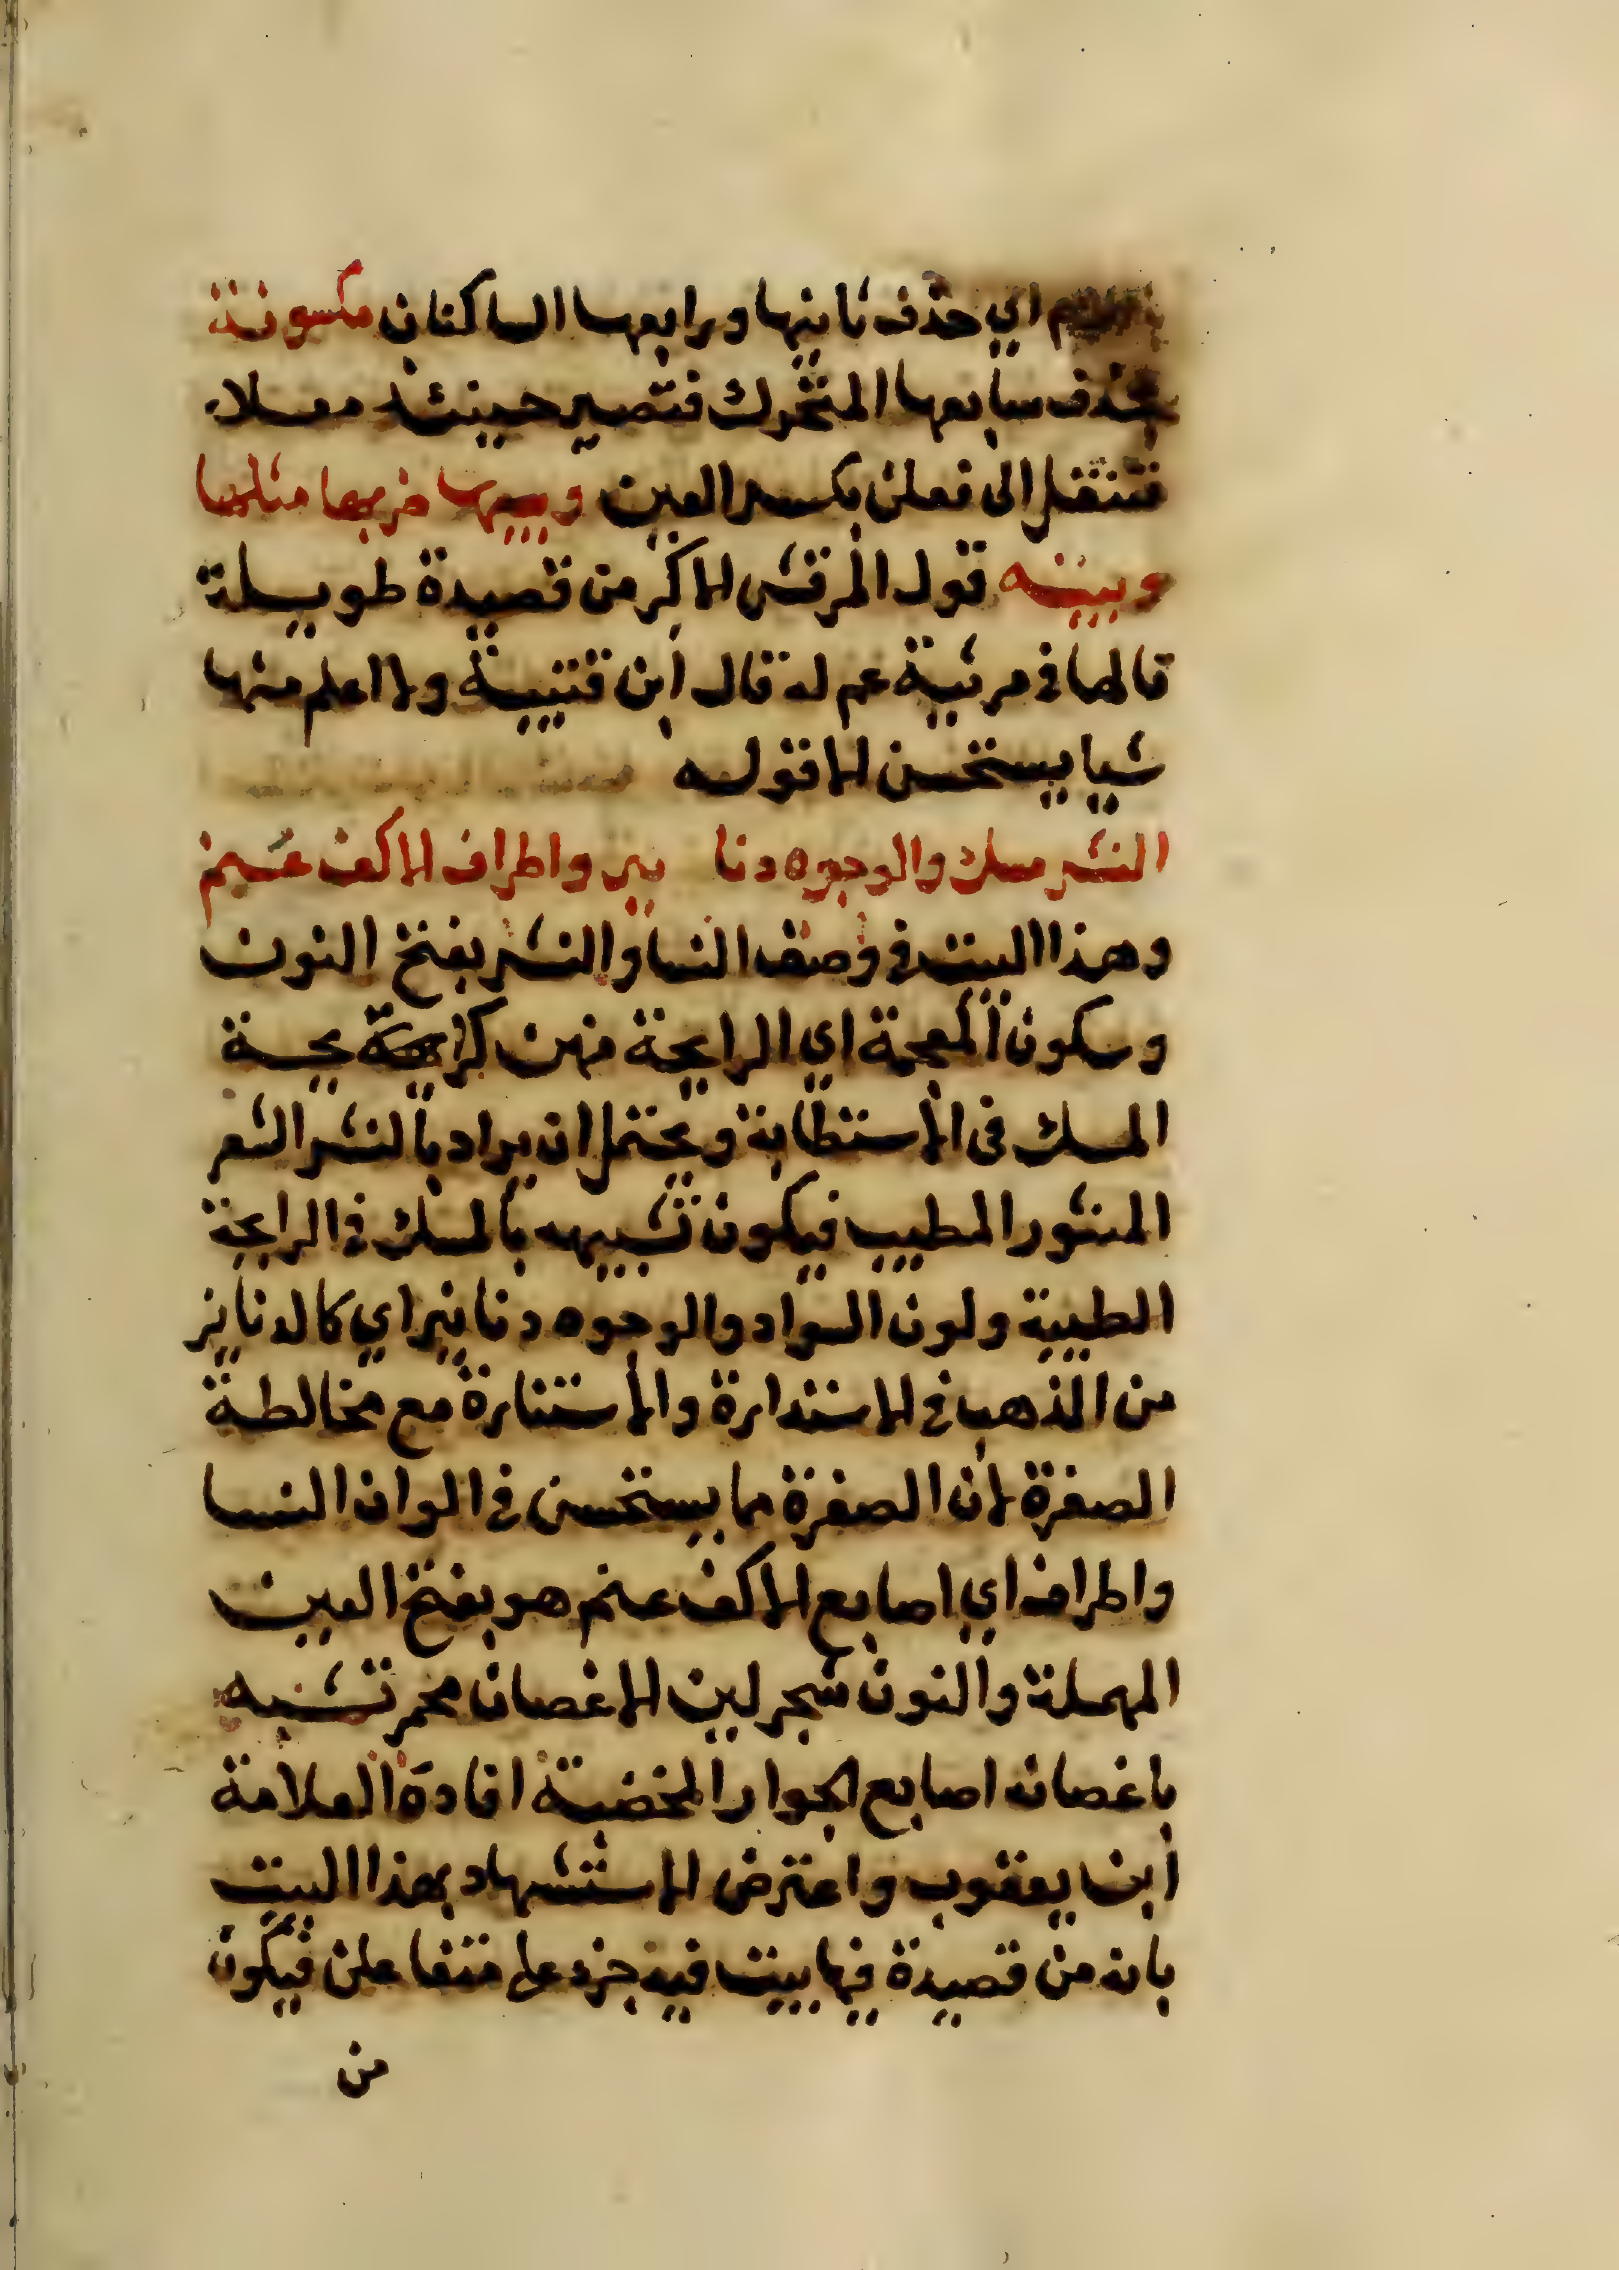 اي حذف ثانيها ورابعها الساكنان مكسوفة
بحذف سابعها المتحرك فتصير حينئذ معلا
فتنقل الى فعلن بكسر العين وبيبها ضربها مثلها
وبيته قول المرقش الاكبر من قصيدة طويلة
قالها في مرثية عم له قال ابن قتيبة ولا اعلم منها
شيا يستحسن الا قوله
النشر مسك والوجوه دنا نير واطراف الاكف عنم
وهذا البيت في وصف النسا والنشر بفتح النون
وسكون المعجمة اي الرايحة منهن كرايحة
المسك في الاستطابة ويحتمل ان يراد بالنشر الشعر
المنشور المطيب فيكون تشبيهه بالمسك في الرايحة
الطيبة ولون السواد والوجوه دنانير اي كالدنانير
من الذهب في الاستدارة والاستنارة مع مخالطة
الصفرة لان الصفرة مما يستحسن في الوان النسا
واطراف اي اصابع الاكف عنم هو بفتح العين
المهملة والنون شجر لين الاغصان محمر تشبه
باغصانه اصابع الجوار المخضبة افاده العلامة
ابن يعقوب واعترض الاستشهاد بهذا البيت
بانه من قصيدة فيها بيت فيه جزء على متفاعلن فيكون
من